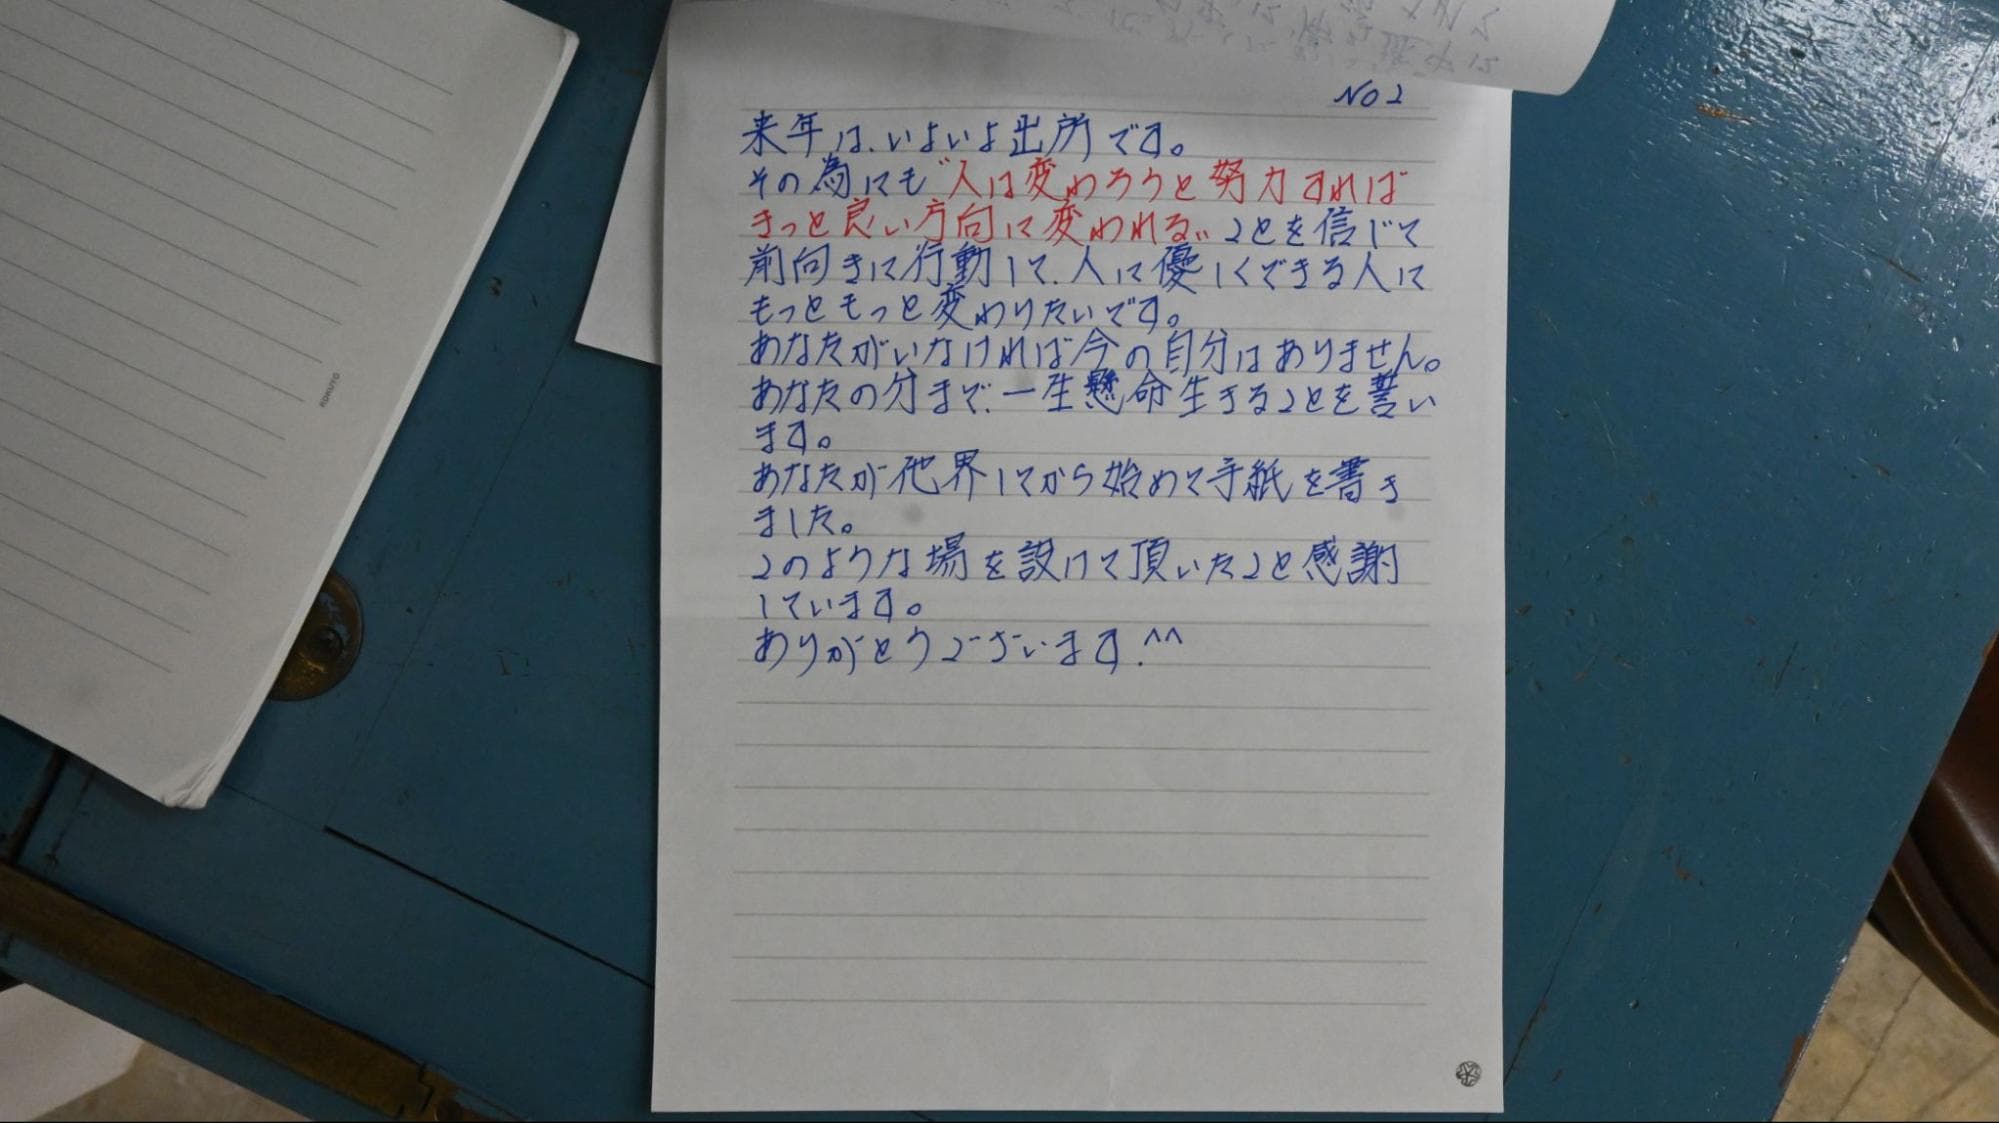 NO2
来年は、いよいよ出所です。
その為にも〝人は変わろうと努力すれば
きっと良い方向に変われる〟ことを信じて
前向きに行動して、人に優しくできる人に
もっともっと変わりたいです。
あなたがいなければ今の自分はありません。
あなたの分まで、一生懸命生きることを誓い
ます。
あなたが他界してから始めて手紙を書き
ました。
このような場を設けて頂いたこと感謝
しています。
ありがとうございます.^^
KOKUYO